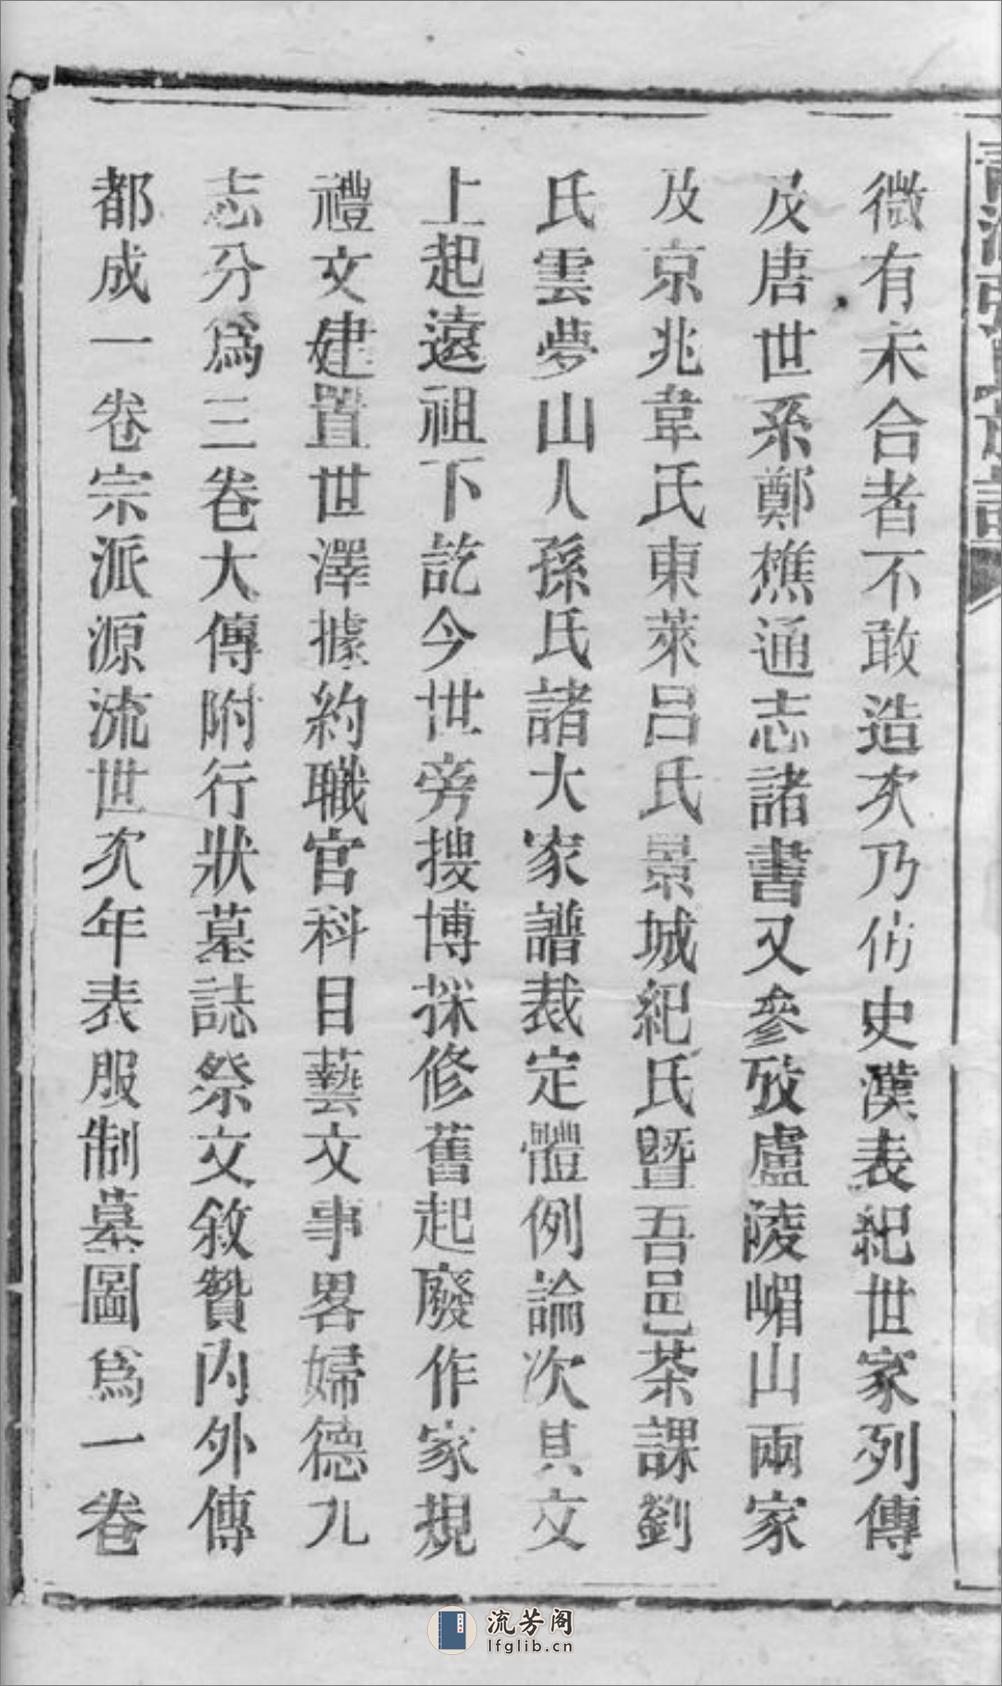 微有未合者不敢造次乃仿史漢表紀世家列傳
及唐世系鄭樵通志諸書又參攷盧陵嵋山兩家
及京兆韋氏東萊呂氏景城紀氏暨吾邑茶課劉
氏雲夢山人孫氏諸大家譜裁定體例論次其文
上起遠祖下訖今世旁搜博採修舊起廢作家規
禮文建置世澤據約職官科目藝文事畧婦德九
志分為三卷大傳附行狀墓誌祭文敘贊内外傳
都成一卷宗派源流世次年表服制墓圖為一卷
流芳阁
lfglib.cn